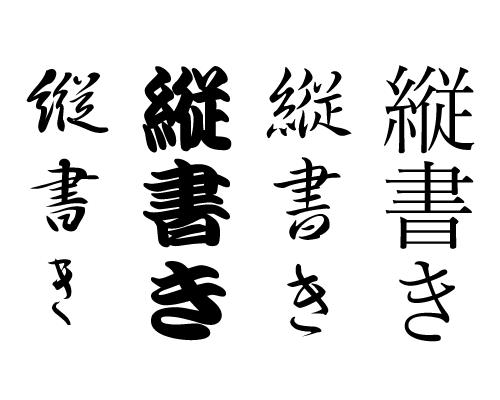 縦書き
縦書き
縦書き
縦書き